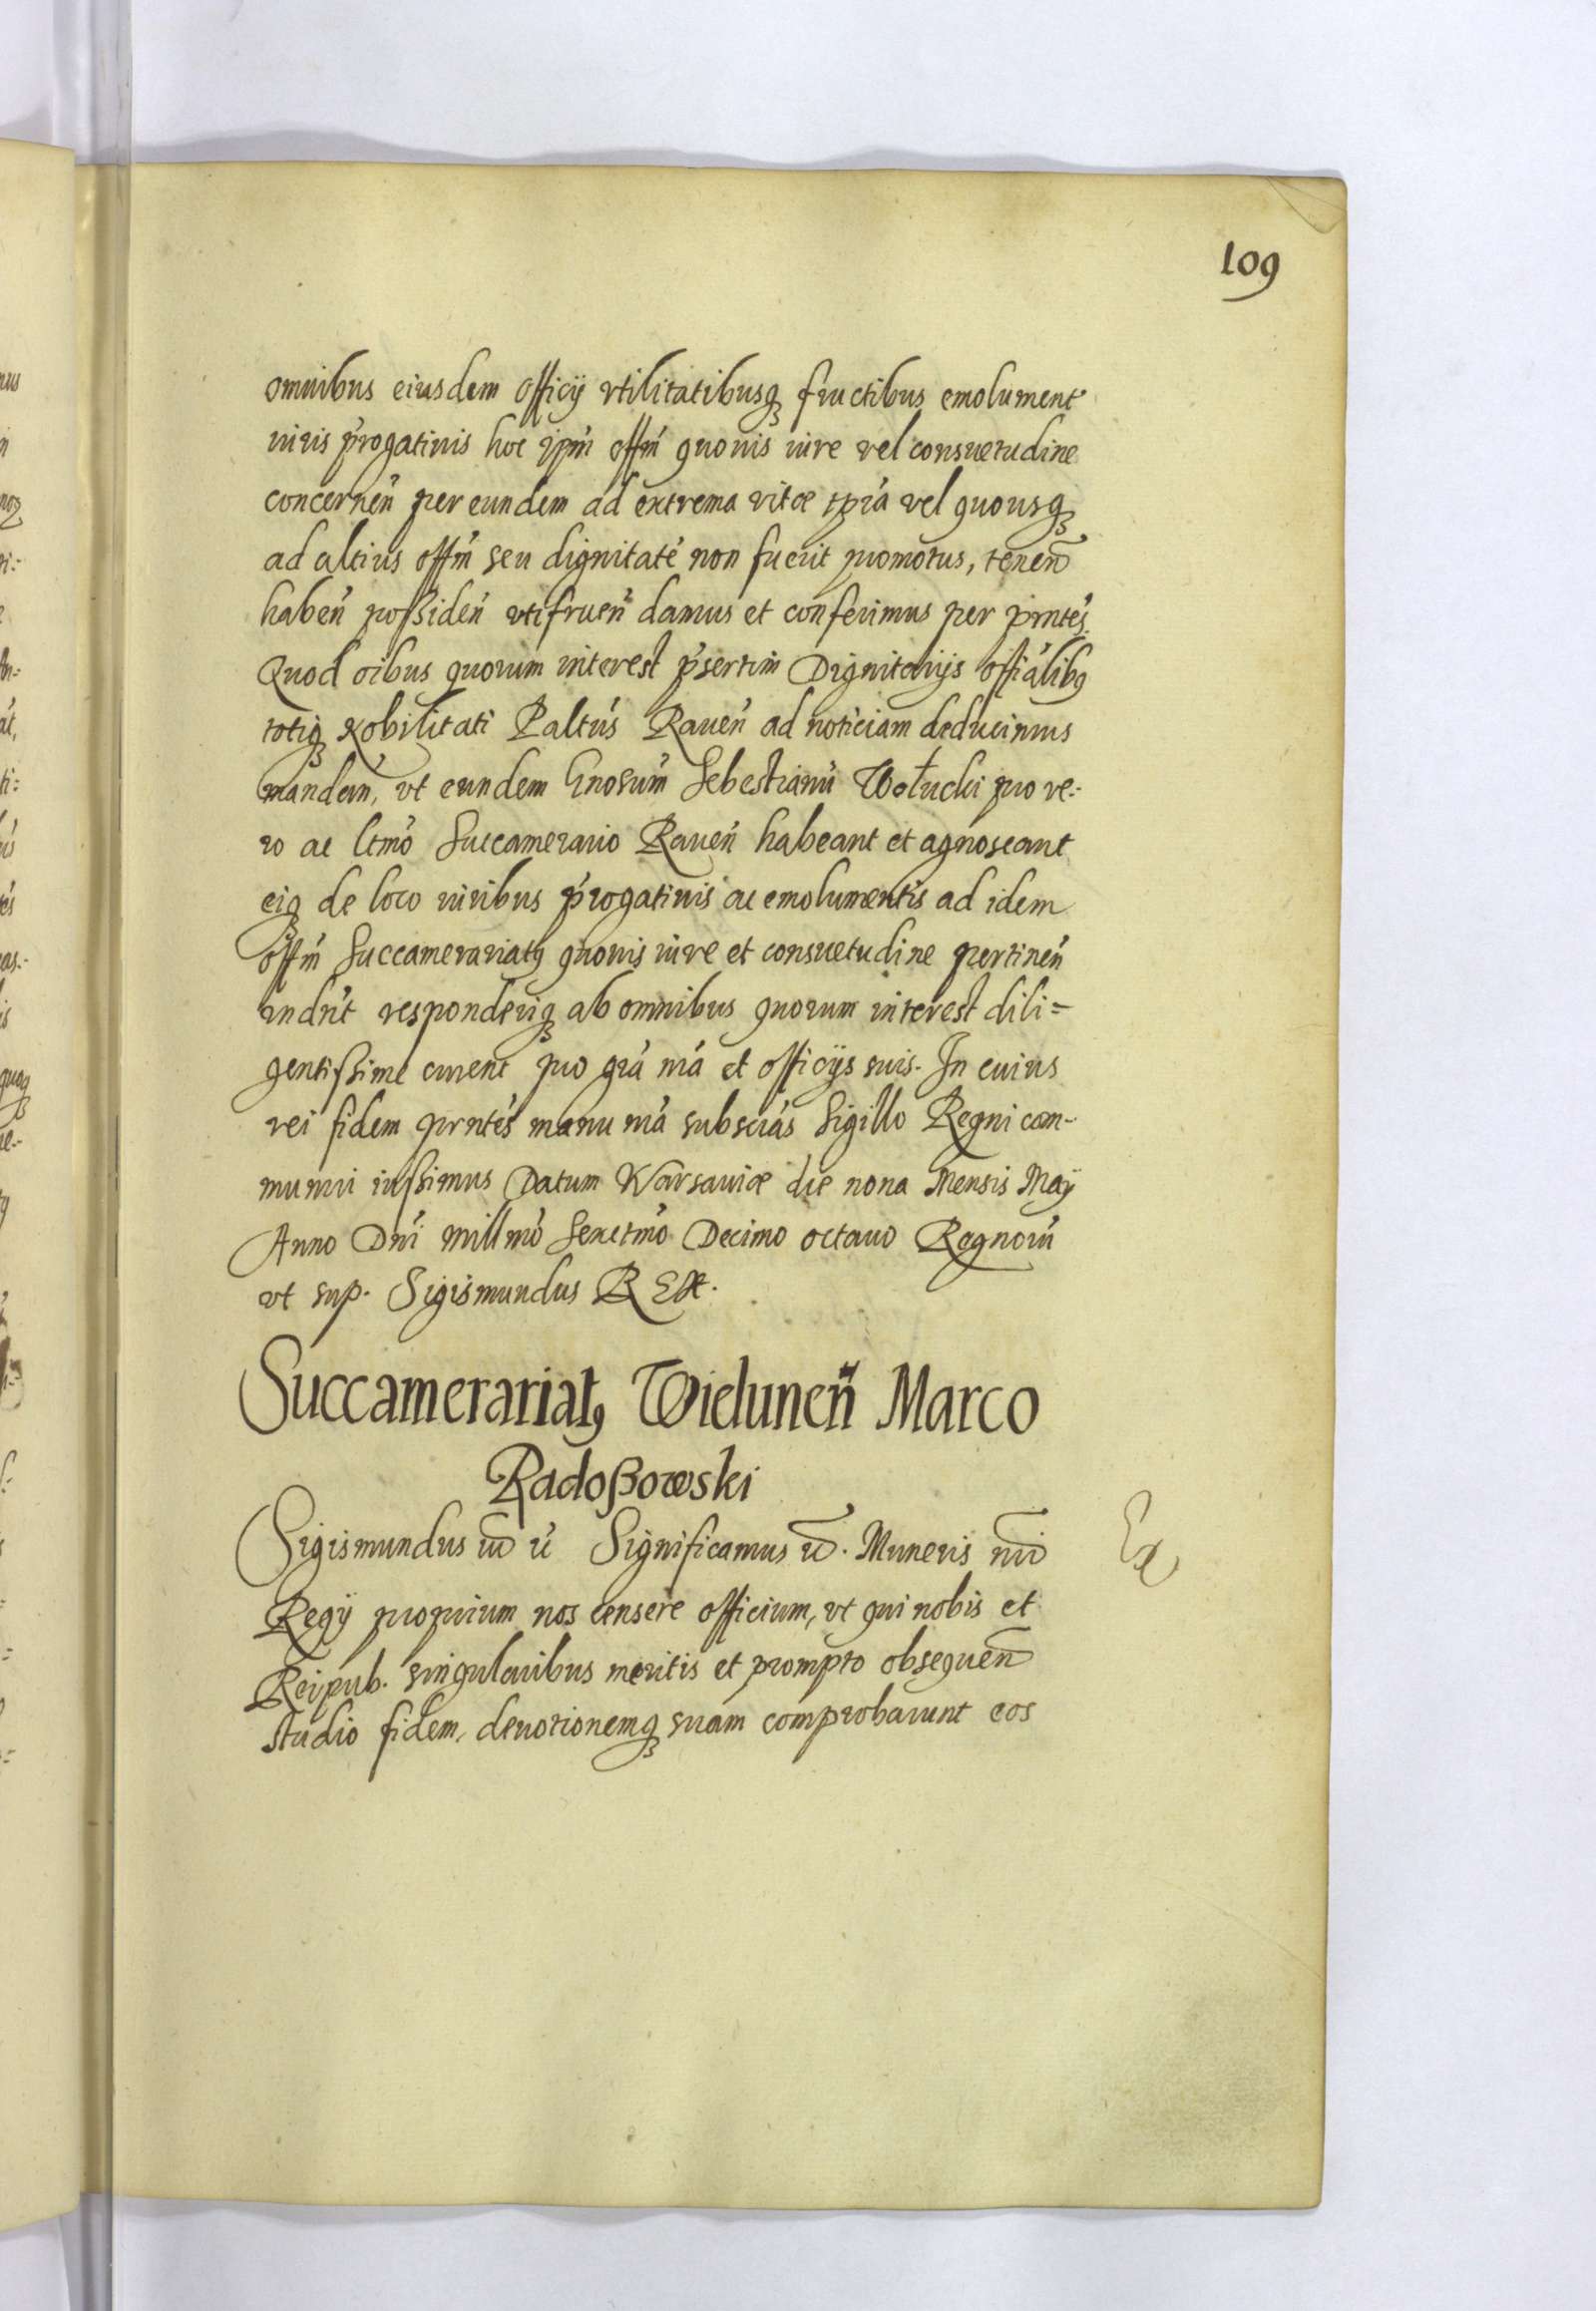 109
omnibus eiusdem officÿ vtilitatibusq fructibus emolument
iuris p̃rogatiuis hoc ipm̃ offm̃ quouis iure vel consuetudine
concerneñ per eundem ad extrema vitæ tp̃ra vel quousq
ad altius offm̃ seu dignitatẽ non fuerit promotus, teneñ
habeñ poßideñ vtifrueñ damus et conferimus per p̃rntes
Quod oĩbus quorum interest p̃sertim Dignitarijs offĩalibꝰ
totiq Nobilitati Paltũs Raueñ ad noticiam deducimus
mandañ, vt eundem Gnosũm Sebestianũ Wołucki pro ve:
ro ac ltmõ Succamerario Raueñ habeant et agnoscant
eiq de loco iuribus p̃rogatiuis ac emolumentis ad idem
offm̃ Succamerariatꝰ quouis iure et consuetudine pertineñ
rndr̃it responderiq ab omnibus quorum interest dili=
gentißime curent pro grã nr̃a et officÿs suis. In cuius
rei fidem p̃rntes manu nr̃a subscr̃as Sigillo Regni com-
muniri iußimus Datum Warsauiæ die nona Mensis Maÿ
Anno Dnĩ Millmõ Sexctmõ Decimo octauo Regnorũ
vt sup. Sigismundus REX.
Succamerariatꝰ Wieluneñ Marco
Radoßowski
Sigismundus Significamus Muneris nr̃i
Ex
Regÿ proprium nos censere officium, vt qui nobis et
Reipub. singularibus meritis et prompto obsequeñ
studio fidem, deuotionemq suam comprobarunt eos